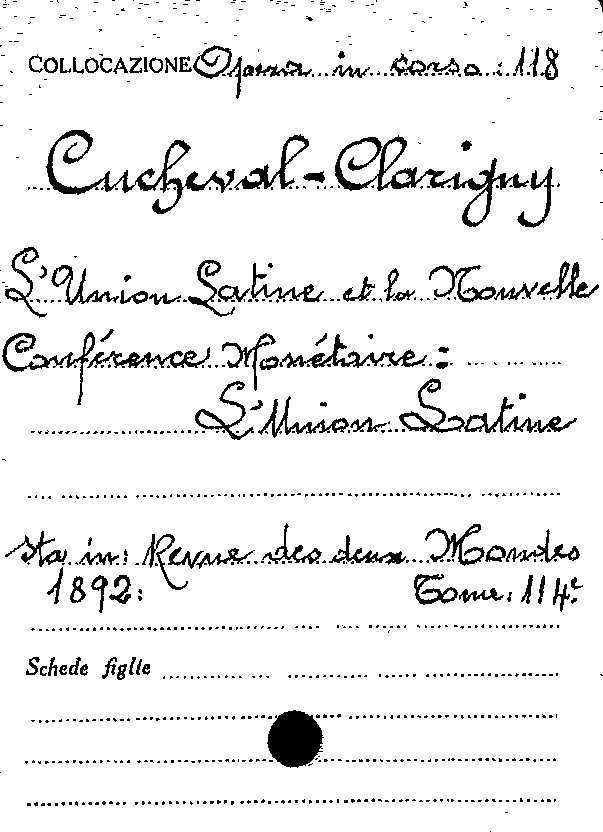 COLLOCAZIONE Opera in corso: 118
Cucheval-Clarigny
L'Union Latine et la Nouvelle
Conférence Monétaire:
L'Union Latine
sta in: Revue des deux Mondes
1892: Tome: 114e
Schede figlie